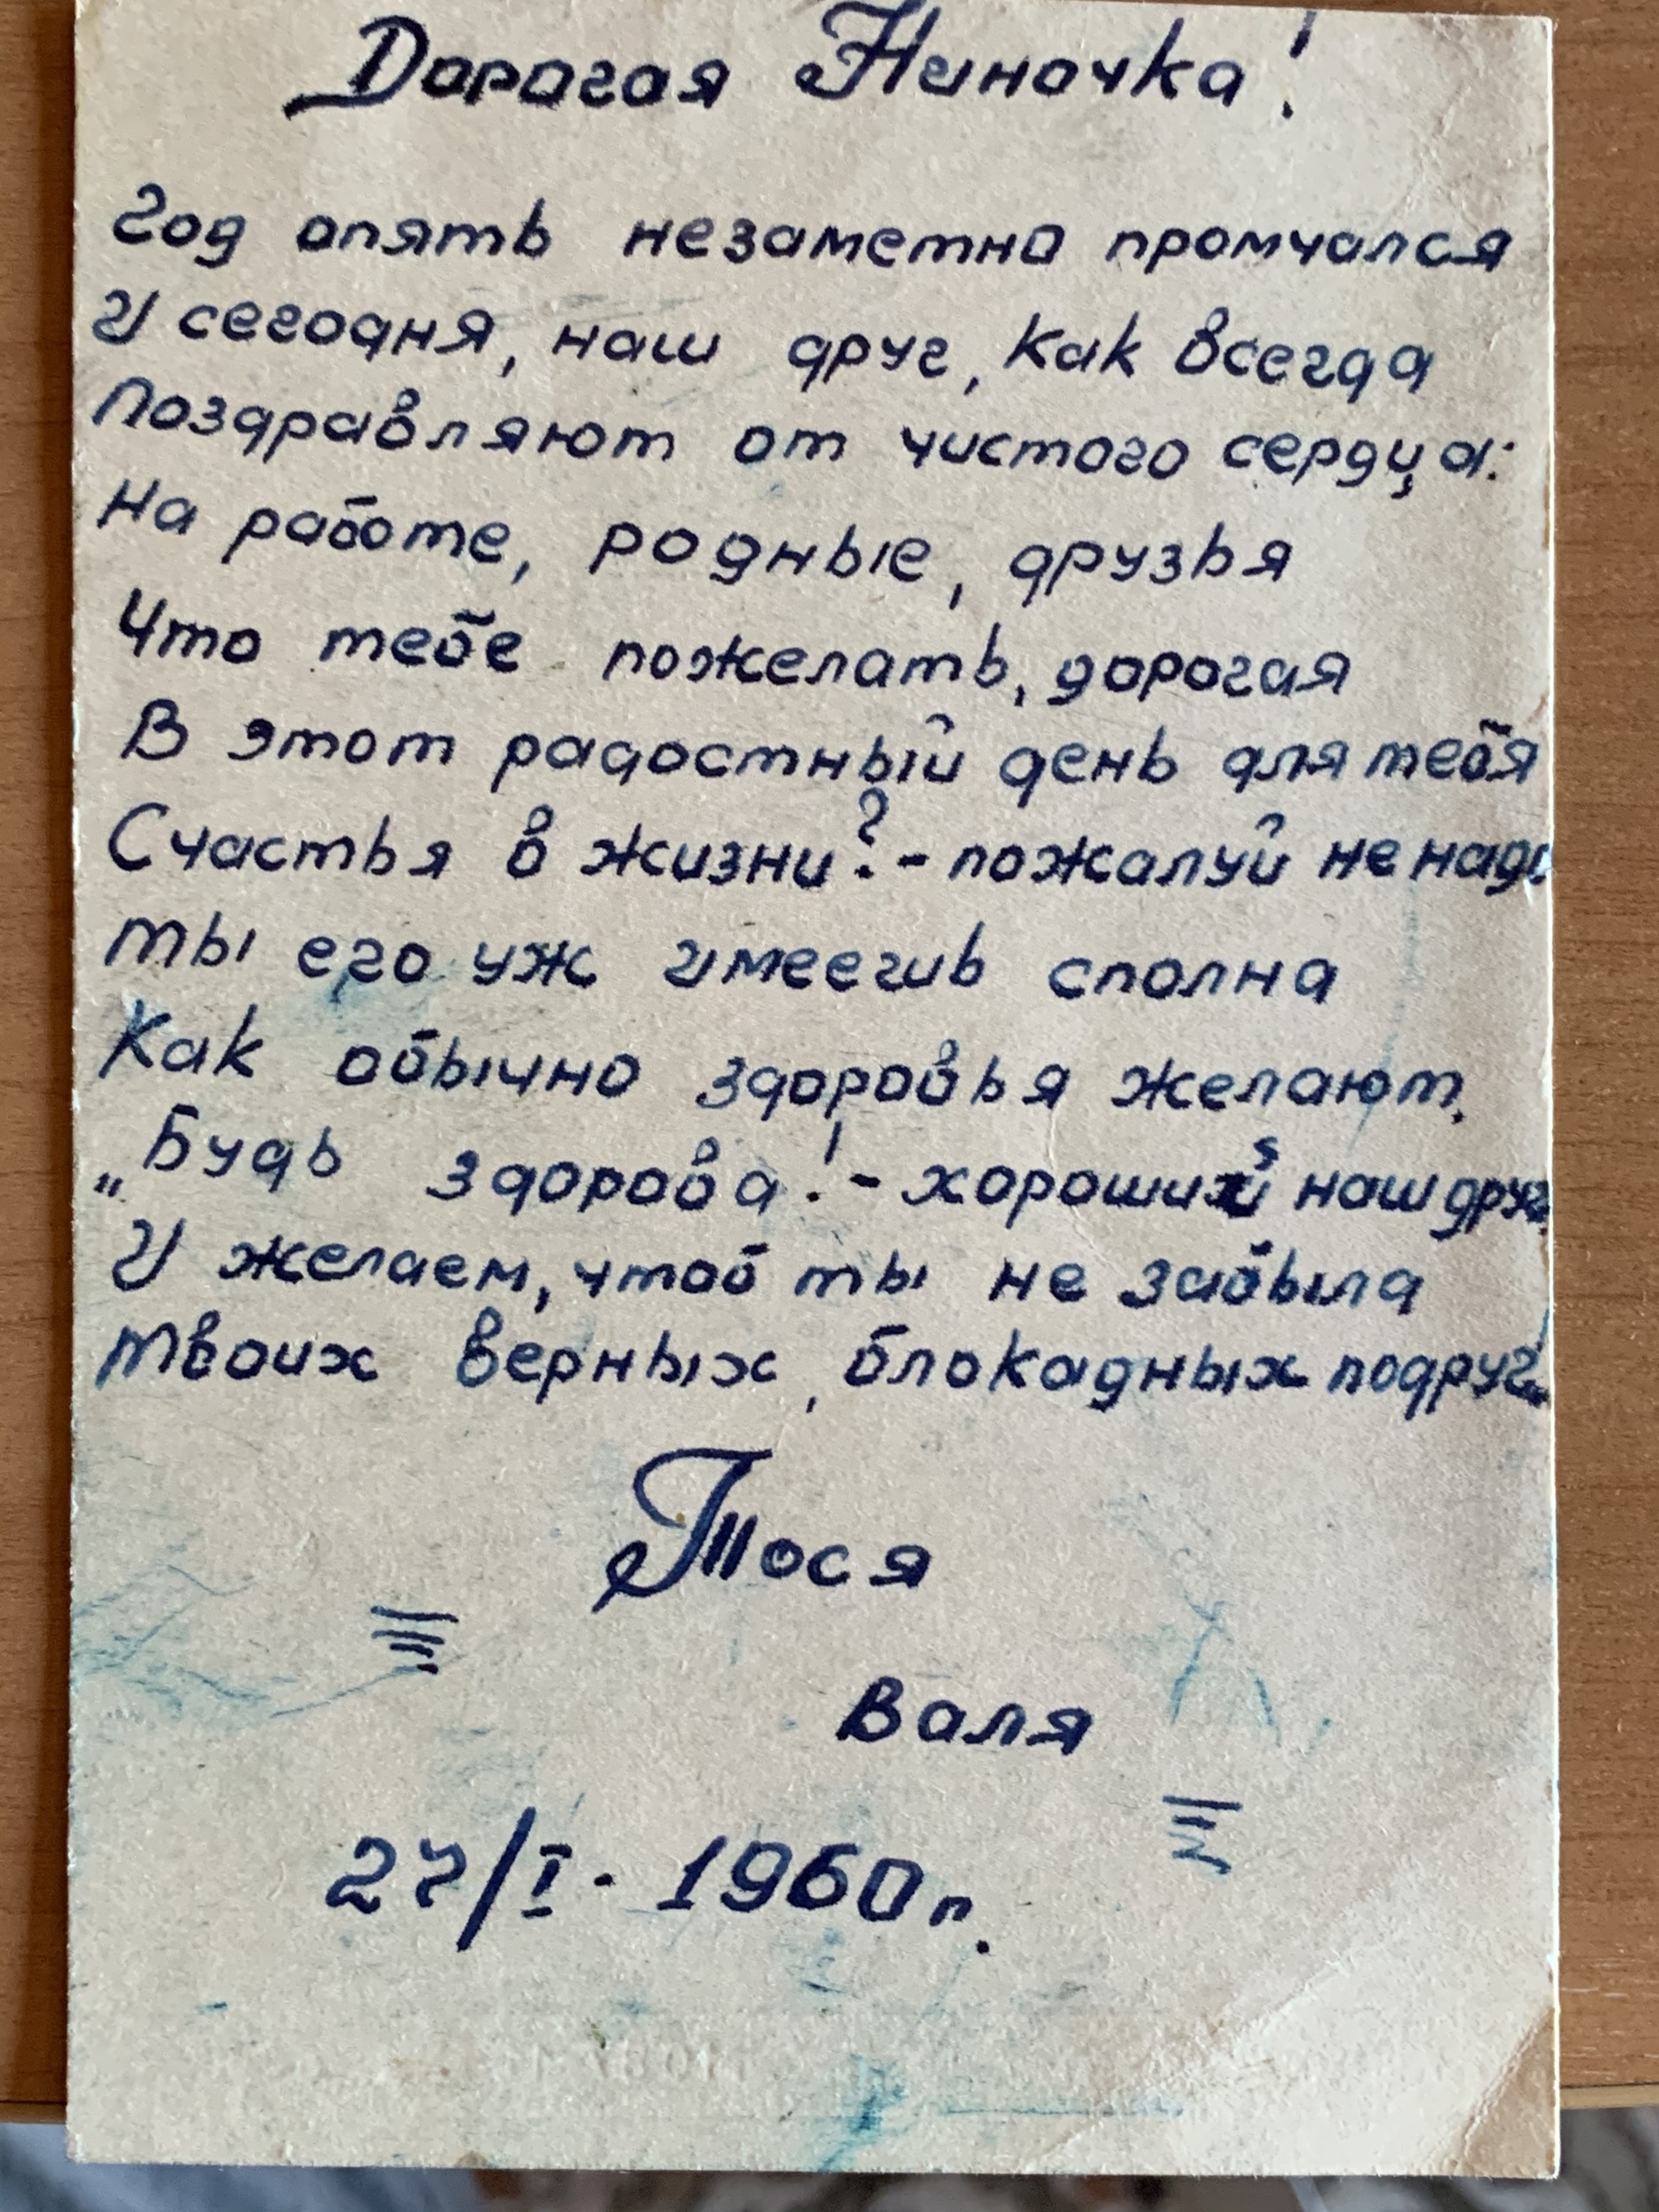 Дорогая Ниночка!
Год опять незаметно промчался
И сегодня, наш друг, как всегда
Поздравляют от чистого сердца:
На работе, родные, друзья
Что тебе пожелать, дорогая
В этот радостный день для тебя
Счастья в жизни? - пожалуй не надо
Ты его уж имеешь сполна
Как обычно здоровья желают.
„Будь здорова! - хороший наш друг
И желаем, чтоб ты не забыла
Твоих верных, блокадных подруг!"
Тося
Валя
27/I - 1960 г.